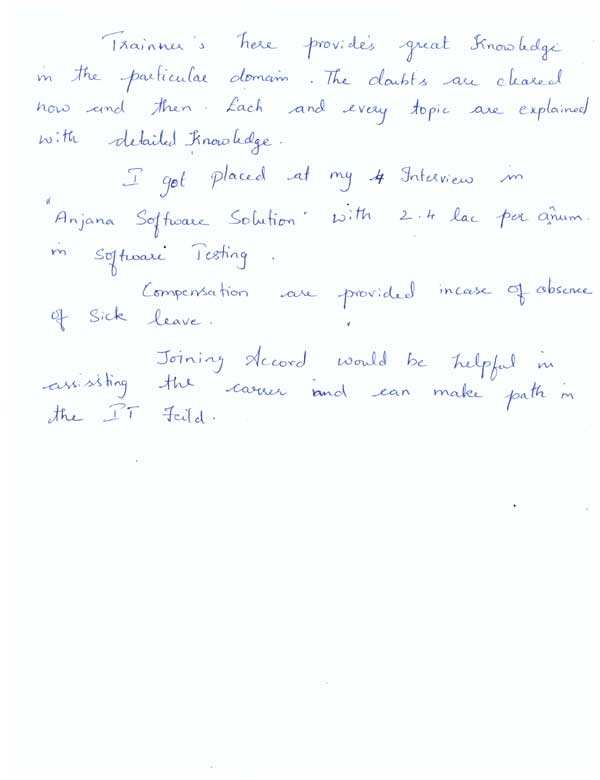 Trainner's here provide's great Knowledge
in the particular domain. The doubts are cleared
now and then. Each and every topic are explained
with detailed Knowledge.
I got placed at my 4 Interview in
"Anjana Software Solution" with 2.4 lac per annum.
in Software Testing.
Compensation are provided incase of absence
of Sick leave.
Joining Accord would be helpful in
assissting the career and can make path in
the IT Feild.